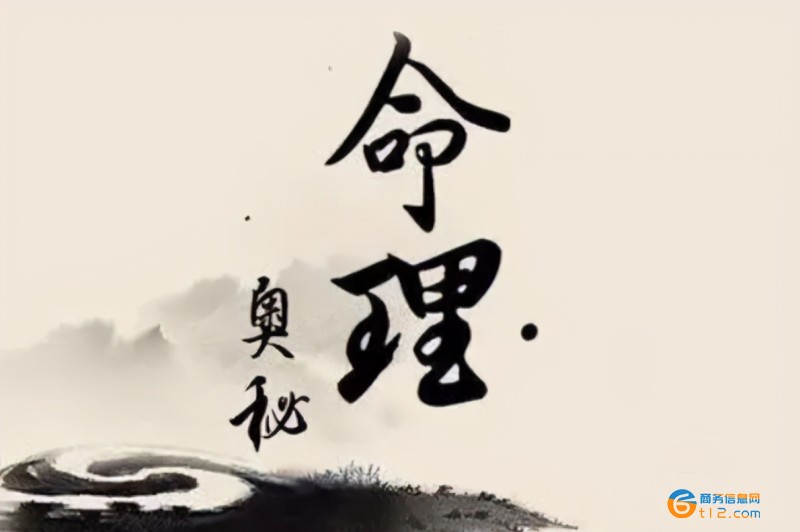 命理
奥秘
商务信息网
6t12.com